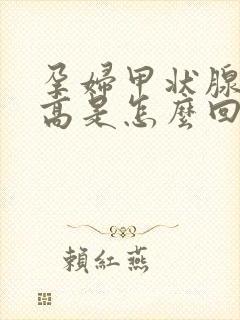 孕婦甲状腺
高是怎麼回
賴紅燕